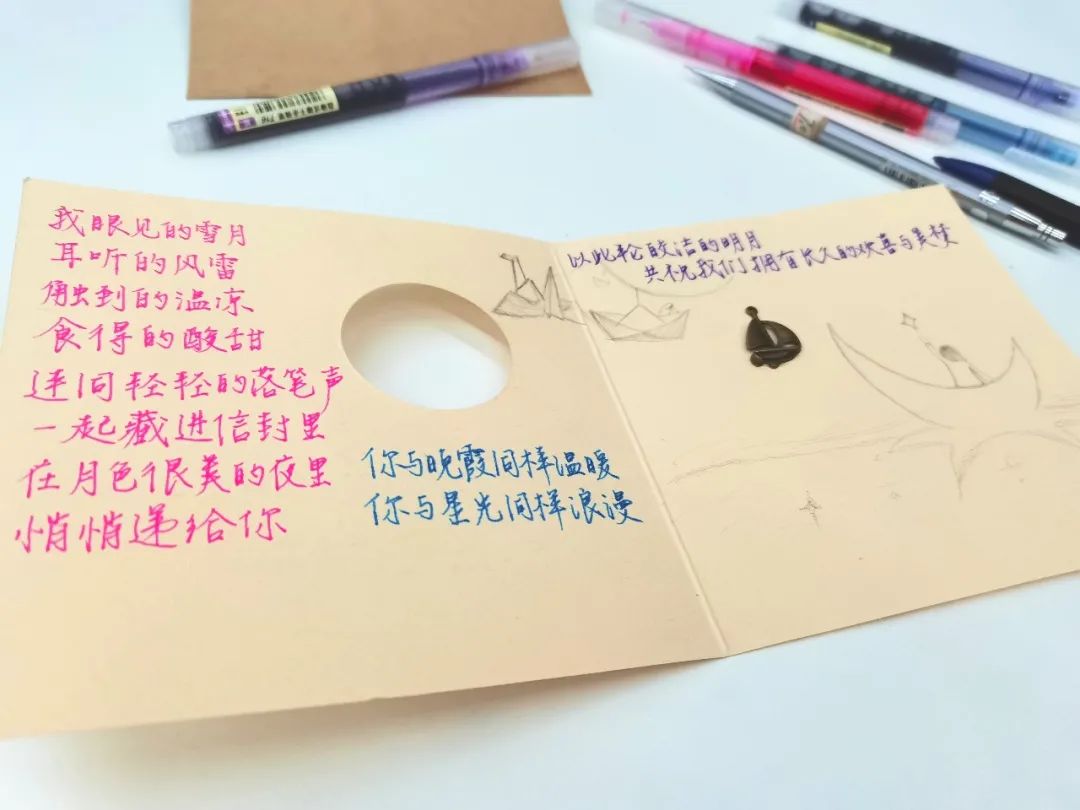 我眼见的雪月
耳听的风雷
触到的温凉
食得的酸甜
连同轻轻的落笔声
一起藏进信封里
在月色很美的夜里
悄悄递给你
你与晚霞同样温暖
你与星光同样浪漫
以此轮皎洁的明月
共祝我们拥有长久的欢喜与美梦